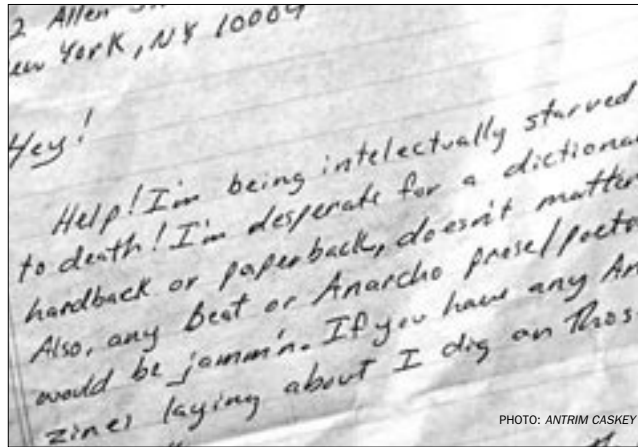 2 Allen
New York, NY 10009
Hey!
Help! I'm being intelectually starved
to death! I'm desperate for a dictiona
hardback or paperback, doesn't matter
Also, any Beat or Anarcho prose/poetr
would be jamm'n. If you have any An
zines laying about I dig on thos
PHOTO: ANTRIM CASKEY